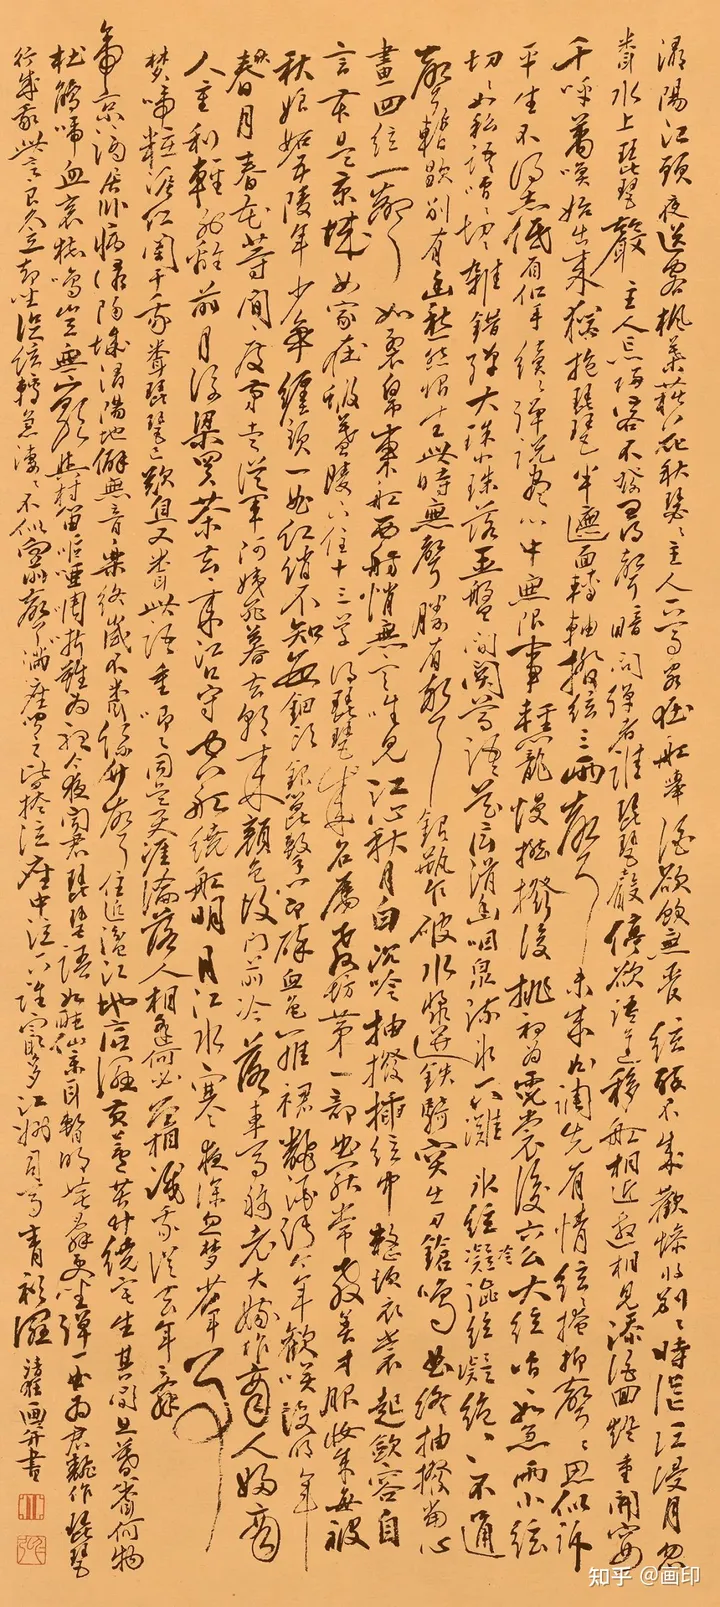 潯陽江頭夜送客楓葉荻花秋瑟〻主人下馬客在船舉酒欲飲無管絃醉不成歡慘將別〻時茫江浸月忽
聞水上琵琶聲主人忘歸客不發尋聲暗問彈者誰琵琶聲停欲語遲移船相近邀相見添酒回燈重開宴
千呼萬喚始出來猶抱琵琶半遮面轉軸撥絃三兩聲未成曲調先有情絃〻掩抑聲〻思似訴
平生不得志低眉信手續〻彈說盡心中無限事輕攏慢撚撥復挑初為霓裳後六么大絃嘈〻如急雨小絃
切〻如私語嘈〻切〻雜錯彈大珠小珠落玉盤間關鶯語花底滑幽咽泉流冰下灘冰絃冷凝澀絃凝絕〻不通
聲暫歇別有幽愁暗恨生此時無聲勝有聲銀瓶乍破水漿迸鐵騎突出刀鎗鳴曲終抽撥當心
畫四絃一聲如裂帛東船西舫悄無言唯見江心秋月白沉吟抽撥插絃中整頓衣裳起斂容自
言本是京城女家在蝦蟇陵下住十三學得琵琶成名屬教坊第一部曲罷常教善才服妝成每被
秋娘妒五陵年少爭纏頭一曲紅綃不知數鈿頭銀篦擊節碎血色羅裙翻酒污今年歡笑復明年
春月春花等閒度弟走從軍阿姨死暮去朝來顏色故門前冷落車馬稀老大嫁作商人婦商
人重利輕別離前月浮梁買茶去〻來江口守空船繞船明月江水寒夜深忽夢少年事
夢啼粧淚紅闌干我聞琵琶已歎息又聞此語重唧〻同是天涯淪落人相逢何必曾相識我從去年辭
帝京謫居臥病潯陽城潯陽地僻無音樂終歲不聞絲竹聲住近湓江地低濕黃蘆苦竹繞宅生其間旦暮聞何物
杜鵑啼血哀猿鳴豈無山歌與村笛嘔啞嘲哳難為聽今夜聞君琵琶語如聽仙樂耳暫明莫辭更坐彈一曲為君翻作琵琶
行感我此言良久立卻坐促絃轉急淒〻不似向前聲滿座聞之皆掩泣座中泣下誰最多江州司馬青衫濕畫并書
知乎 @画印